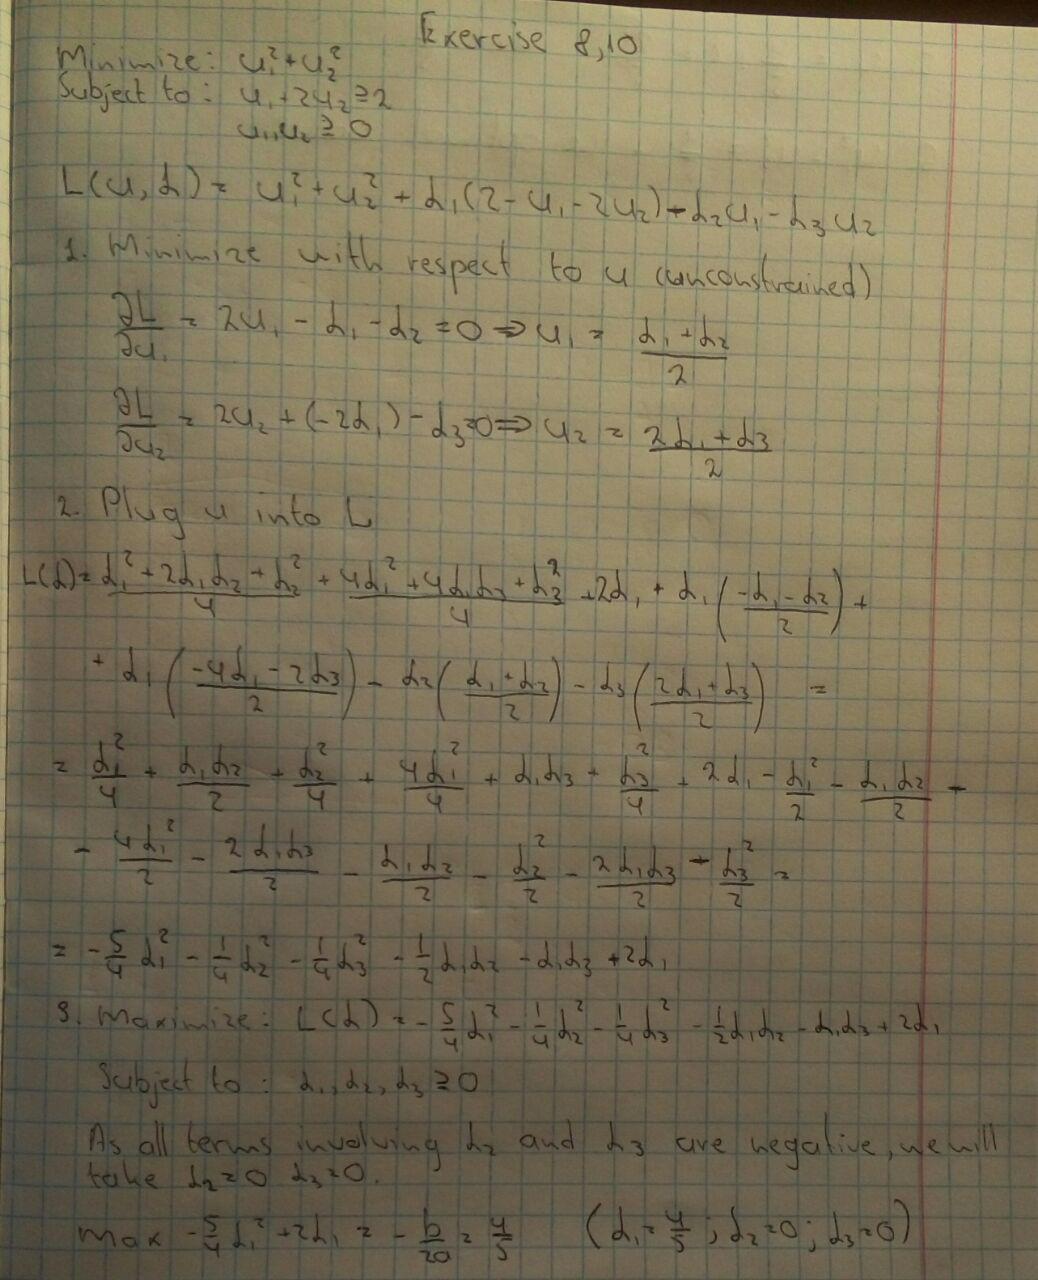 Exercise 8,10
Minimize: u₁²+u₂²
Subject to: u₁+2u₂≥2
u₁,u₂ ≥ 0
L(u,α) = u₁²+u₂² + α₁(2-u₁-2u₂) - α₂u₁ - α₃u₂
1. Minimize with respect to u (unconstrained)
∂L/∂u₁ = 2u₁ - α₁ - α₂ = 0 ⇒ u₁ = (α₁+α₂)/2
∂L/∂u₂ = 2u₂ + (-2α₁) - α₃=0 ⇒ u₂ = (2α₁+α₃)/2
2. Plug u into L
L(α) = (α₁²+2α₁α₂+α₂²)/4 + (4α₁²+4α₁α₃+α₃²)/4 + 2α₁ + α₁((-α₁-α₂)/2) +
+ α₁((-4α₁-2α₃)/2) - α₂((α₁+α₂)/2) - α₃((2α₁+α₃)/2) =
= α₁²/4 + α₁α₂/2 + α₂²/4 + 4α₁²/4 + α₁α₃ + α₃²/4 + 2α₁ - α₁²/2 - α₁α₂/2 -
- 4α₁²/2 - 2α₁α₃/2 - α₁α₂/2 - α₂²/2 - 2α₁α₃/2 - α₃²/2 =
= -5/4 α₁² - 1/4 α₂² - 1/4 α₃² - 1/2 α₁α₂ - α₁α₃ + 2α₁
3. Maximize: L(α) = -5/4 α₁² - 1/4 α₂² - 1/4 α₃² - 1/2 α₁α₂ - α₁α₃ + 2α₁
Subject to: α₁, α₂, α₃ ≥ 0
As all terms involving α₂ and α₃ are negative, we will
take α₂=0 α₃=0.
max -5/4 α₁² + 2α₁ = -b/2a = 4/5 (α₁=4/5; α₂=0; α₃=0)